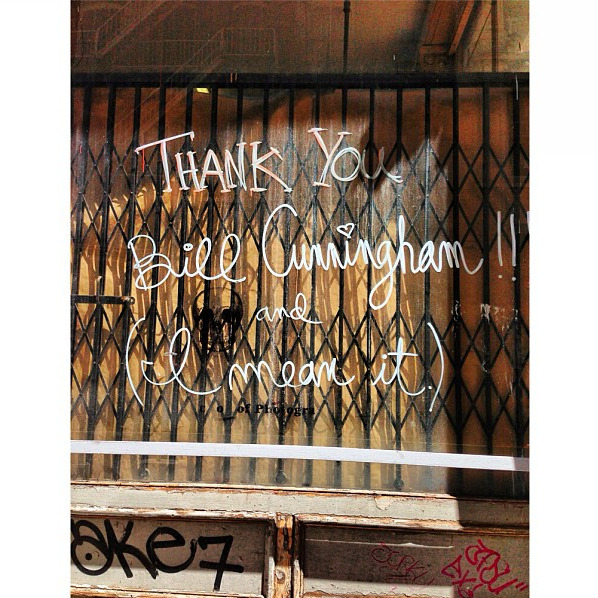 THANK YOU
Bill Cunningham !!
and
(I mean it.)
of Photogra
ake7